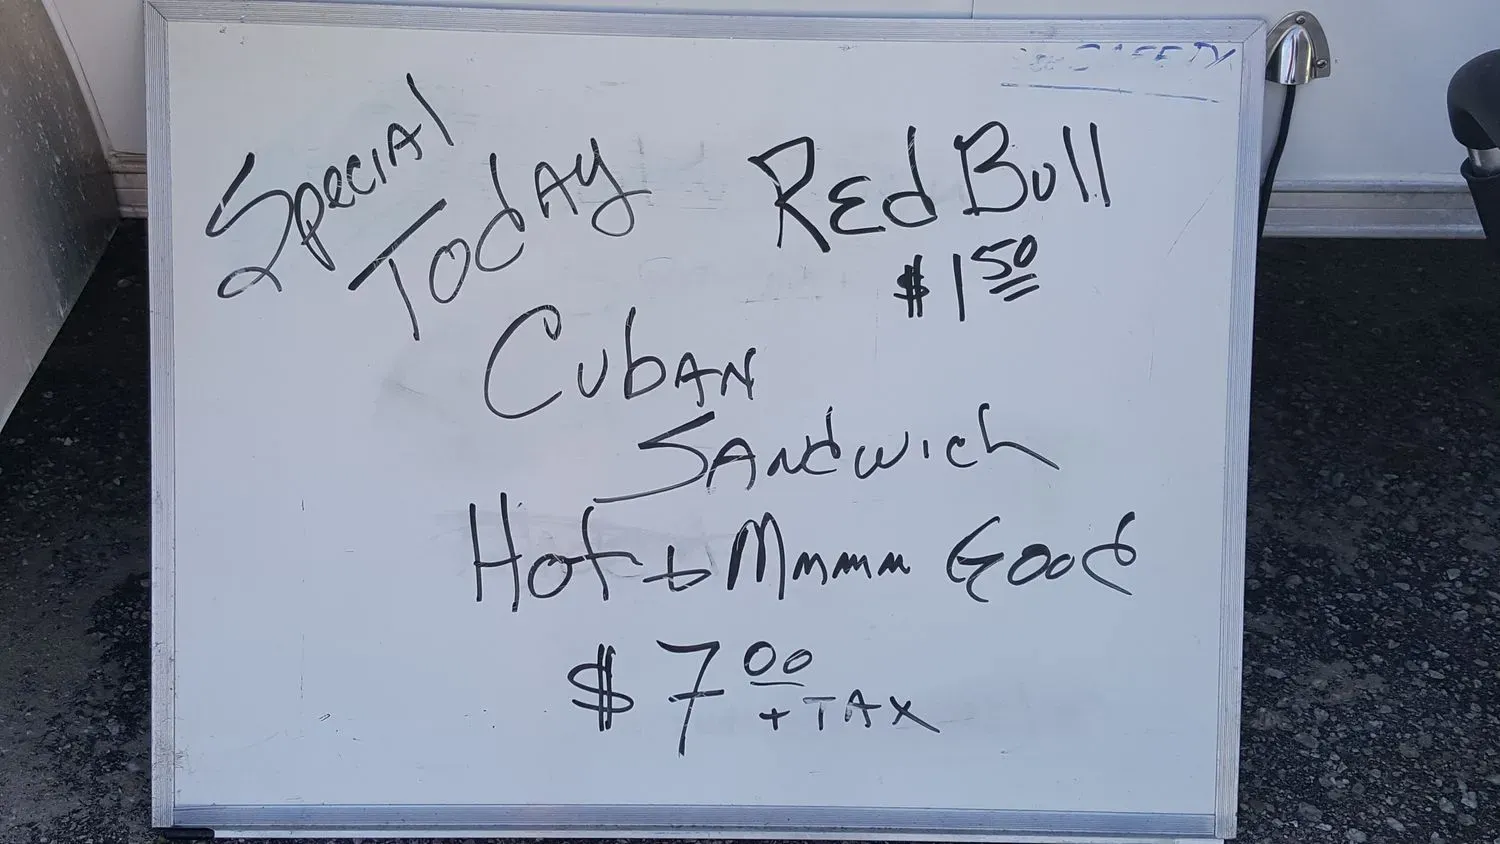 Special
Today
Red Bull
$1 50
Cuban
Sandwich
Hot & Mmmmm Good
$7 00
+ TAX
SAFETY